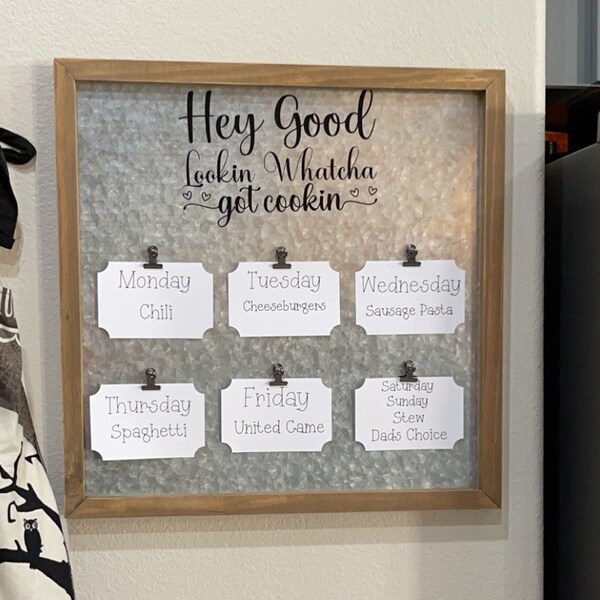 Hey Good
Lookin Whatcha
got cookin
Monday
Chili
Tuesday
Cheeseburgers
Wednesday
Sausage Pasta
Thursday
Spaghetti
Friday
United Game
Saturday
Sunday
Stew
Dads Choice